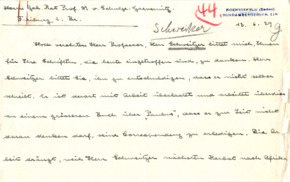 Herrn Geh. Rat Prof. Dr. v. Schulze-Gaevernitz,
Freiburg i. Br.
KÖNIGSFELD (Baden)
44
Schweitzer
13. 6. 29
Hoch verehrter Herr Professor, Herr Schweitzer bittet mich, Ihnen
für Ihre Schriften, die heute eingetroffen sind, zu danken. Herr
Schweitzer bittet Sie, ihn zu entschuldigen, dass er nicht selber
schreibt. Er ist derart mit Arbeit überlastet und möchte
an einem grösseren Buch über "Paulus", dass er zur Zeit nicht
daran denken darf, seine Correspondenz zu erledigen. Die Ar-
beit drängt, weil Herr Schweitzer nächsten Herbst nach Afrika